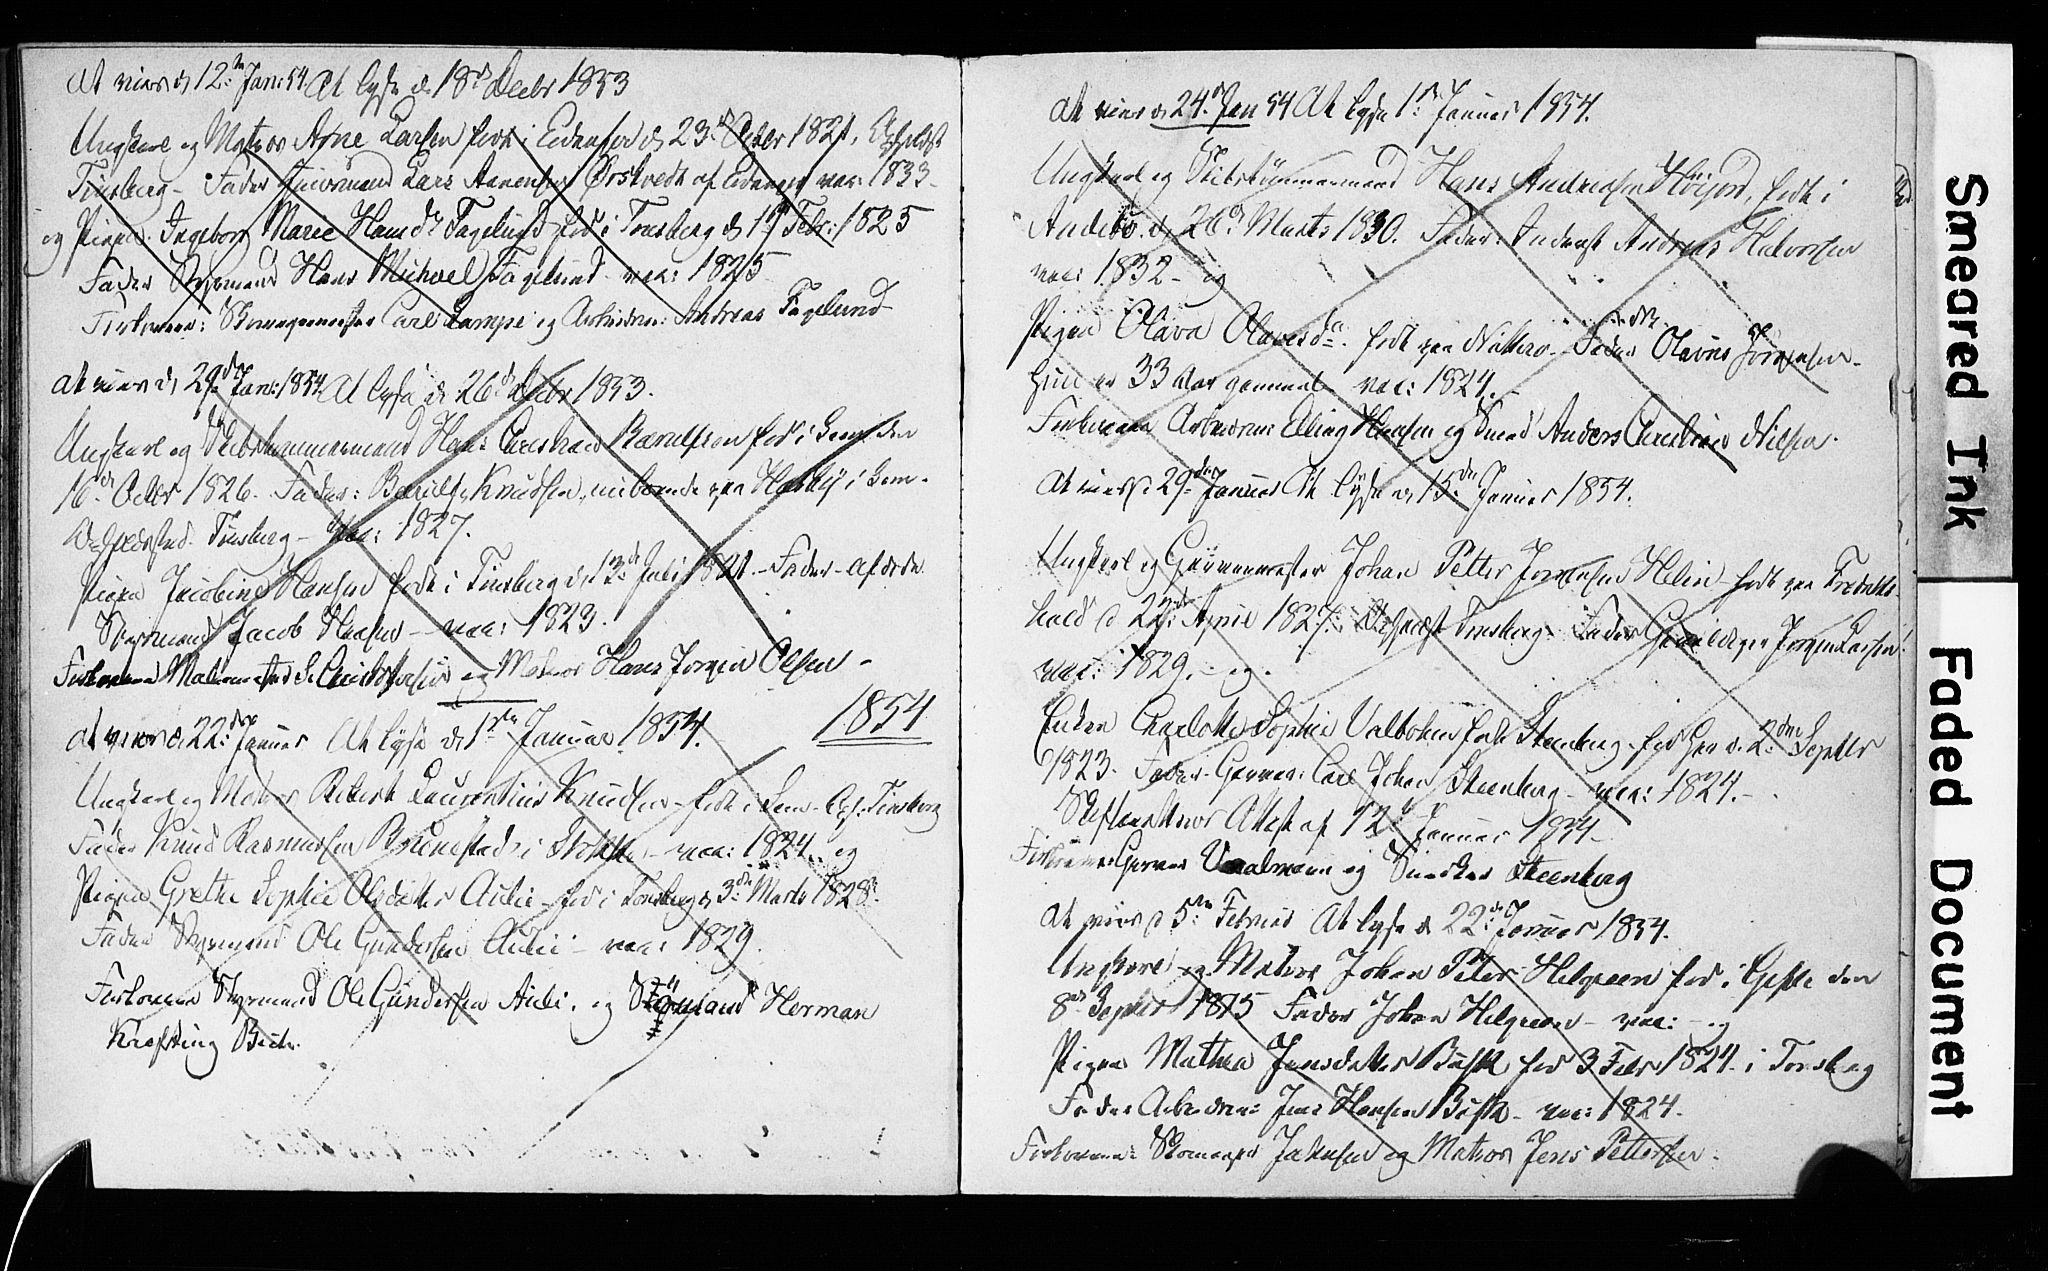 At vies d 12te Jan: 54 At lyse d. 18de Decbr 1853
Ungkarl og Matros Arne Larsen født i Eidanger d 23de Octbr 1821,
Tønsberg - Fader Lars Aanensen Ørstvedt af Eidanger vac: 1833
og Pigen Ingeborg Marie Hansdr Fagelund fød i Tønsberg d 19 Febr: 1825
Fader Styrmand Hans Michael Fagelund vac: 1825
Forlovere: Skomagermester Carl Lampe og Arbeidsm: Andreas Fagelund
At vies d 29de Jan: 1854 At lyse d. 26de Decbr 1853.
Ungkarl og Skibstømmermand Hans Christian Bærulfsen fød i Sem den
16de Octbr 1826. Fader: Bærulf Knudsen, nuboende paa i Sem.
Opholdssted Tønsberg - Vac: 1827.
Pigen Jacobine Hansen født i Tønsberg d. 13de Juli 1821 - Fader - afdøde
Styrmand Jacob Hansen - vac: 1823.
Forlovere og Matros Hans Jørgen Olsen -
1854
At vies d. 22de Januar At lyse d 1ste Januar 1854.
Ungkarl og Matros Robert Laurentius Knudsen - født i Sem - Oph: Tønsberg
Fader Knud Rasmussen Brunestad i Stokke - vac: 1824. og
Pigen Grethe Sophie Olsdatter Aulie - fød i Tønsberg d 3de Marts 1828.
Fader Styrmand Ole Gundersen Aulie - vac: 1829
Forlovere Styrmand Ole Gundersen Aulie. og Styrmand Herman
Krafting Bull.
At vies d 24de Jan 54 At lyse 1ste Januar 1854.
Ungkarl og Skibstømmermand Hans Andreasen Høijord, født i
Andebo. d 26de Marts 1830. Fader: Andreas Halvorsen
vac: 1832 - og
Pigen Olava Olavesda. født paa Nøtterø - Fader Olaves Jørgensen -
hun er 33 Aar gammel vac: 1824.
Forlovere Arbeidsm: Elling Hansen og Smed Anders Christian Nilsen.
At vies d 29de Januar At lyse d. 15de Januar 1854.
Ungkarl og Garvermester Johan Petter Jørgensen Helin - født paa Fredriks
hald d 22de April 1827. Opholdst. Tønsberg - Fader Jørgen Larsen
vac: 1829. - og.
Enken Charlotte Sophie Valboken født Steenberg - fød her d. 2den Septbr
1823. Fader - Garver: Carl Johan Steenberg - vac: 1824. -
Skifterettens Attest af 12te Januar 1854 -
Forlovere Garver og Snedker Steenberg
At vies d 5te Februar At lyse d 22de Januar 1854.
Ungkarl og Matros Johan Peter Helgreen fød i Gefle den
8de Septbr 1815 Fader Johan Helgreen - vac: - og
Pigen Mathea Jensdatter Busk fød 3 Febr 1824. i Tønsberg
Fader Arbeidsm: Jens Hansen Busk - vac: 1824.
Forlovere: Skomager Jakobsen og Matros Jens Pettersen.
Smeared Ink
Faded Document